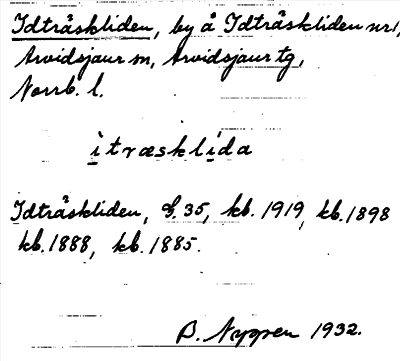 Idträskliden, by å Idträskliden nr 1,
Arvidsjaur sn, Arvidsjaur tg,
Norrb. l.
itræsklida
Idträskliden, G. 35, kb. 1919, kb. 1898
kb. 1888, kb. 1885.
B. Nyppen 1932.